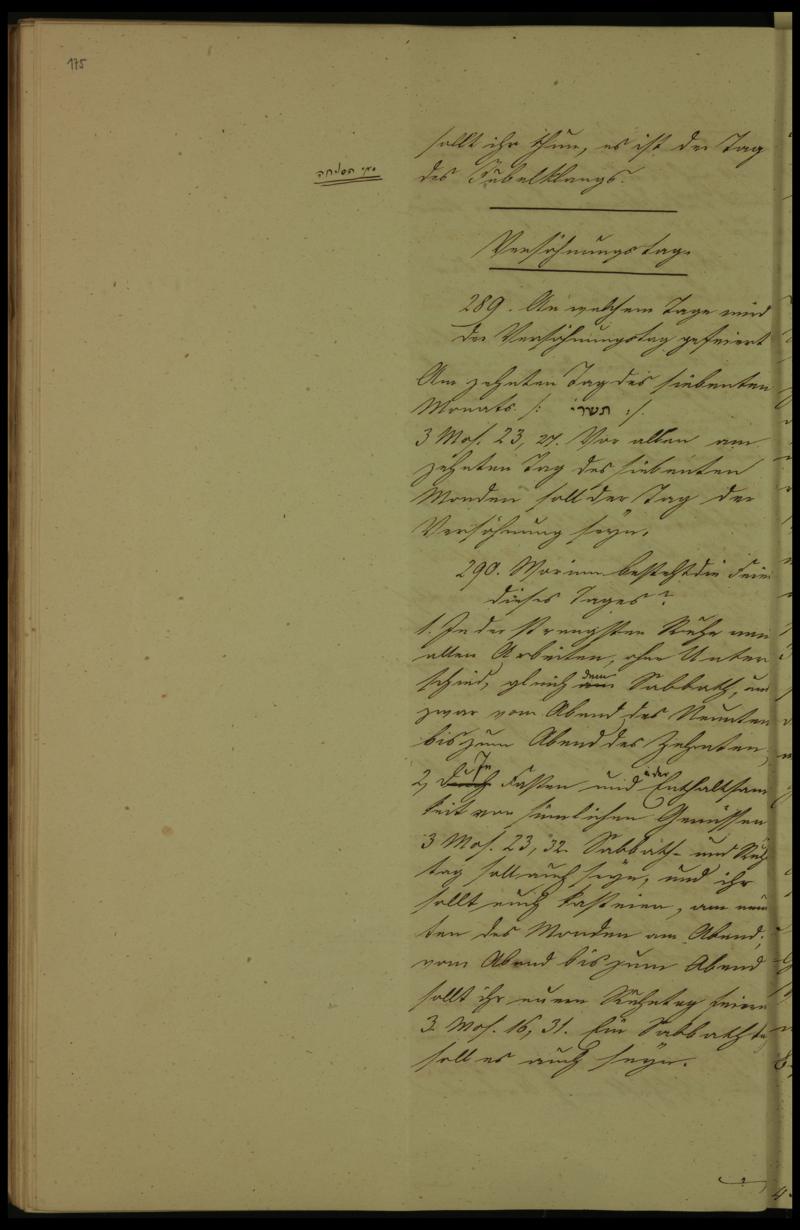 175
sollt ihr thun, es ist der Tag
des Jubelklangs.
Versöhnungstag.
289. An welchem Tage wird
der Versöhnungstag gefeiert
Am zehnten Tag des siebenten
Monats /: תשרי :/
3 Mos. 23, 27. Vor allen am
zehnten Tag des siebenten
Monden soll der Tag der
Versöhnung seyn.
290. Worinn besteht die Feier
dieses Tages?
1. In der strengsten Ruhe von
allen Arbeiten, ohne Unter
schied, gleich dem Sabbath, und
zwar vom Abend des Neunten
bis zum Abend des Zehnten,
2, Durch In Fasten und in der Enthaltsam
keit von sinnlichen Genüssen
3 Mos. 23, 32. Sabbath- und Ruh
tag soll euch seyn, und ihr
sollt euch kasteien, am neun
ten des Monden am Abend;
vom Abend bis zum Abend
sollt ihr euern Ruhetag feiern
3. Mos. 16, 31. Ein Sabbath
soll es euch seyn.